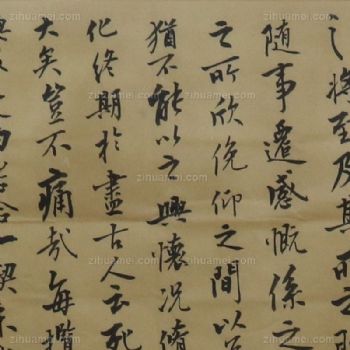 之將至及其所之
隨事遷感慨係之
之所欣俛仰之間以
猶不能以之興懷況脩
化終期於盡古人云死
大矣豈不痛哉每攬
合一契未
zihuamei.com